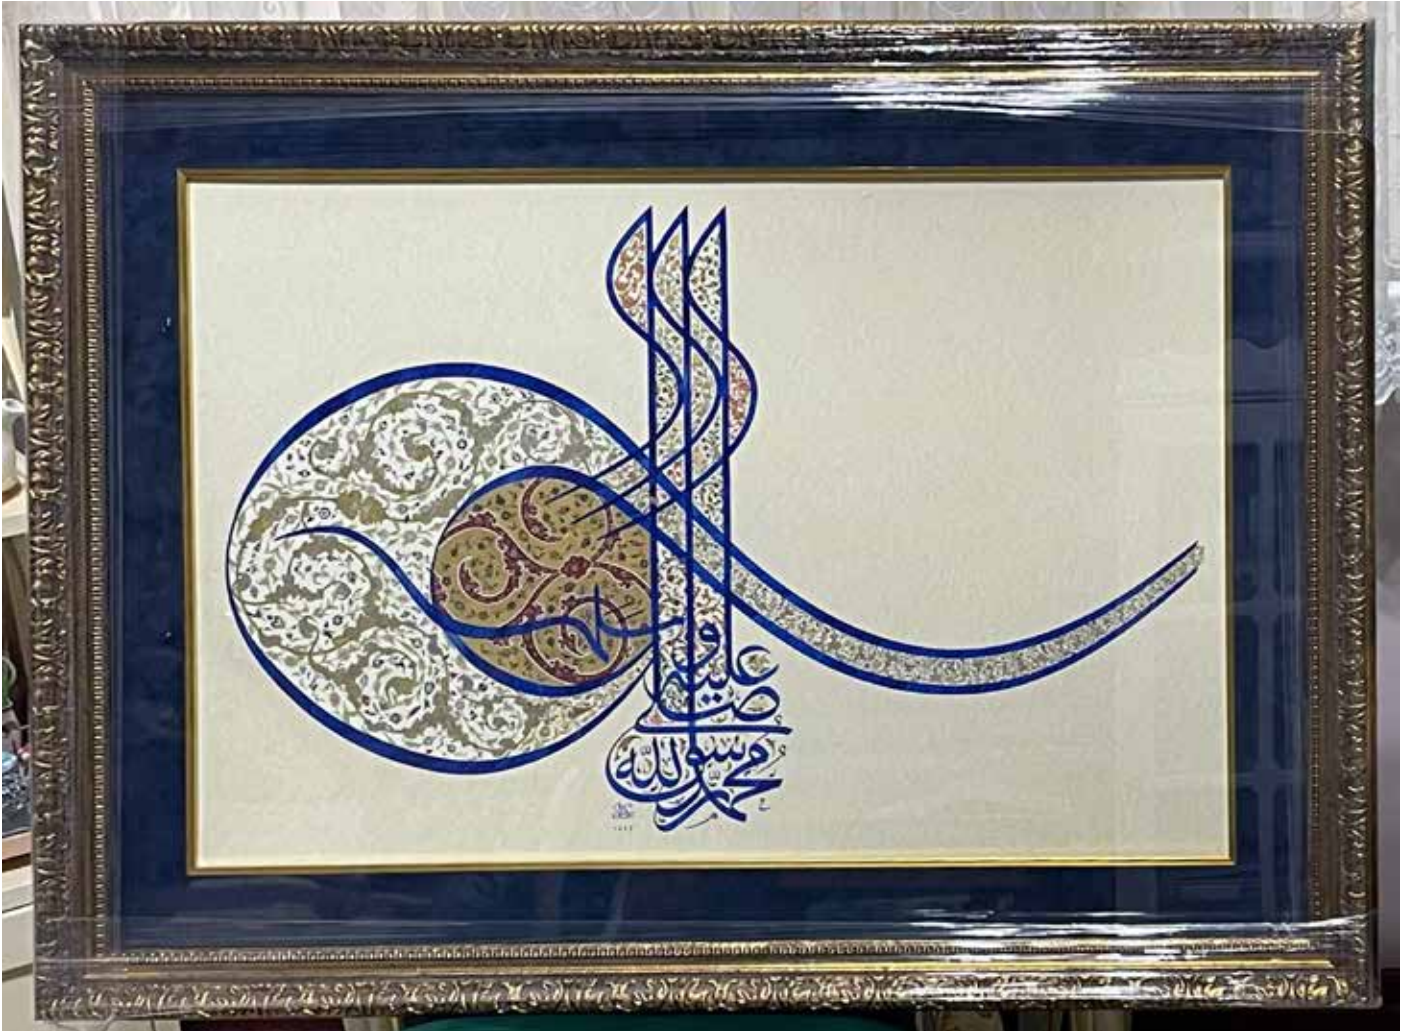 محمد رسول الله
صلى
عليه
وسلم